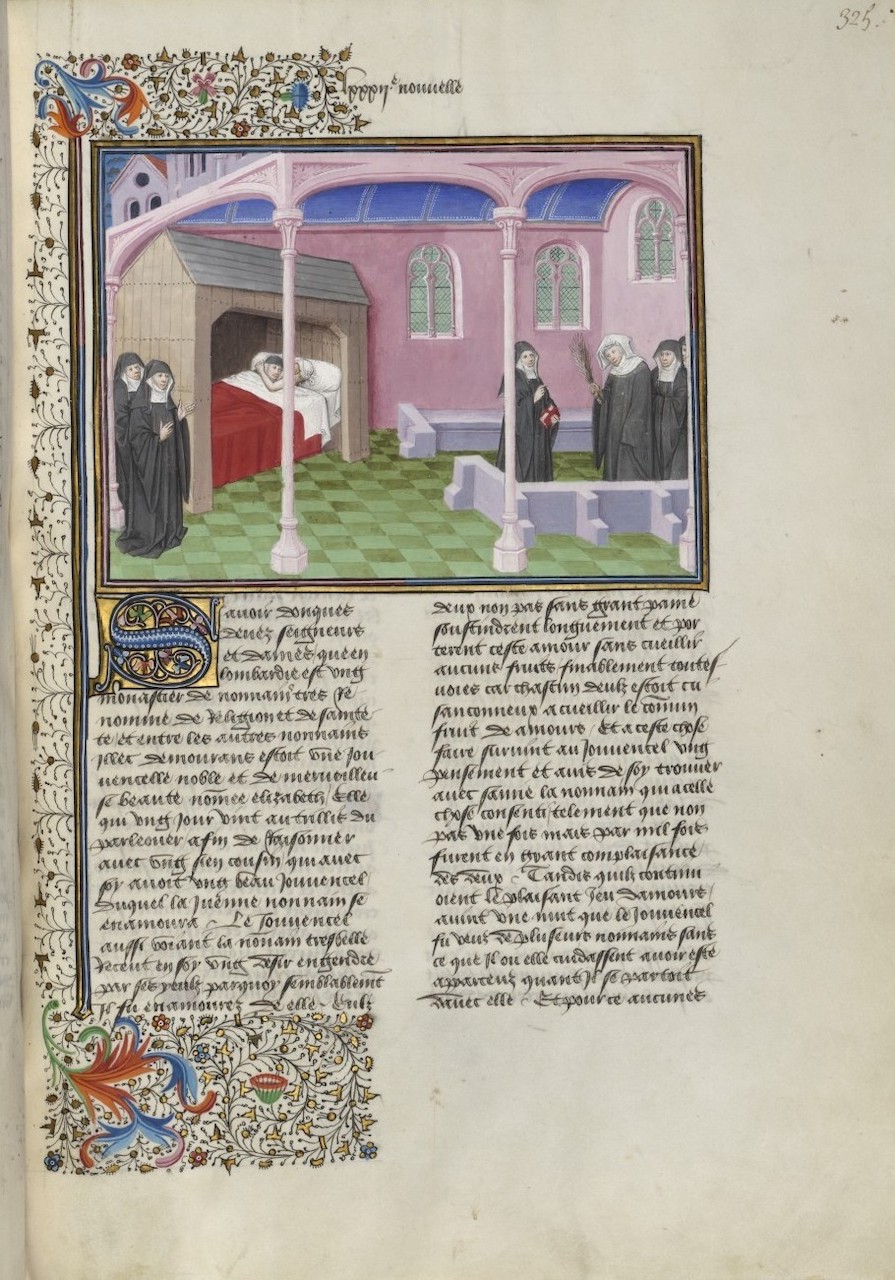 325.
lxxxii.e nouuelle
Sauoir donques
deuez seigneurs
et dames que en
lombardie est vng
monastier de nonnains tres re
nomme de Religion et de saincte
te et entre les autres nonnains
illec demourans estoit vne Jou
uencelle noble et de merueilleu
se beaute nommee elizabeth / Elle
qui vng Jour vint au trillis du
parleouer afin de raisonner
auec vng sien cousin qui auec
soy auoit vng beau Jouuencel
duquel la Juenne nonnain se
enamoura / Le Jouuencel
aussi voiant la nonain tresbelle
Recent en soy vng desir engendre
par ses yeulx parquoy semblablement
Il fu enamourez de elle / Eulx
deux non pas sans grant paine
soustindrent longuement et por
terent ceste amour sans cueillir
aucuns fruits / finablement toutes
uoies car chascun deulx estoit cu
sanconneux a cueillir le commun
fruit de amours / Et a ceste chose
faire suruint au Jouuencel vng
pensement et auis de soy trouuer
auec sanne la nonnain qui a celle
chose consenti / telement que non
pas vne fois mais par mil fois
furent en grant complaisance
des deux / Tandis quilz continu
oient le plaisant Jeu damours /
auint vne nuit que le Jouuencel
fu veuz de plusieurs nonnains sans
ce que Il ou elle cuidassent auoir este
apparceuz quant Il se partoit
dauec elle / Et pour ce aucunes